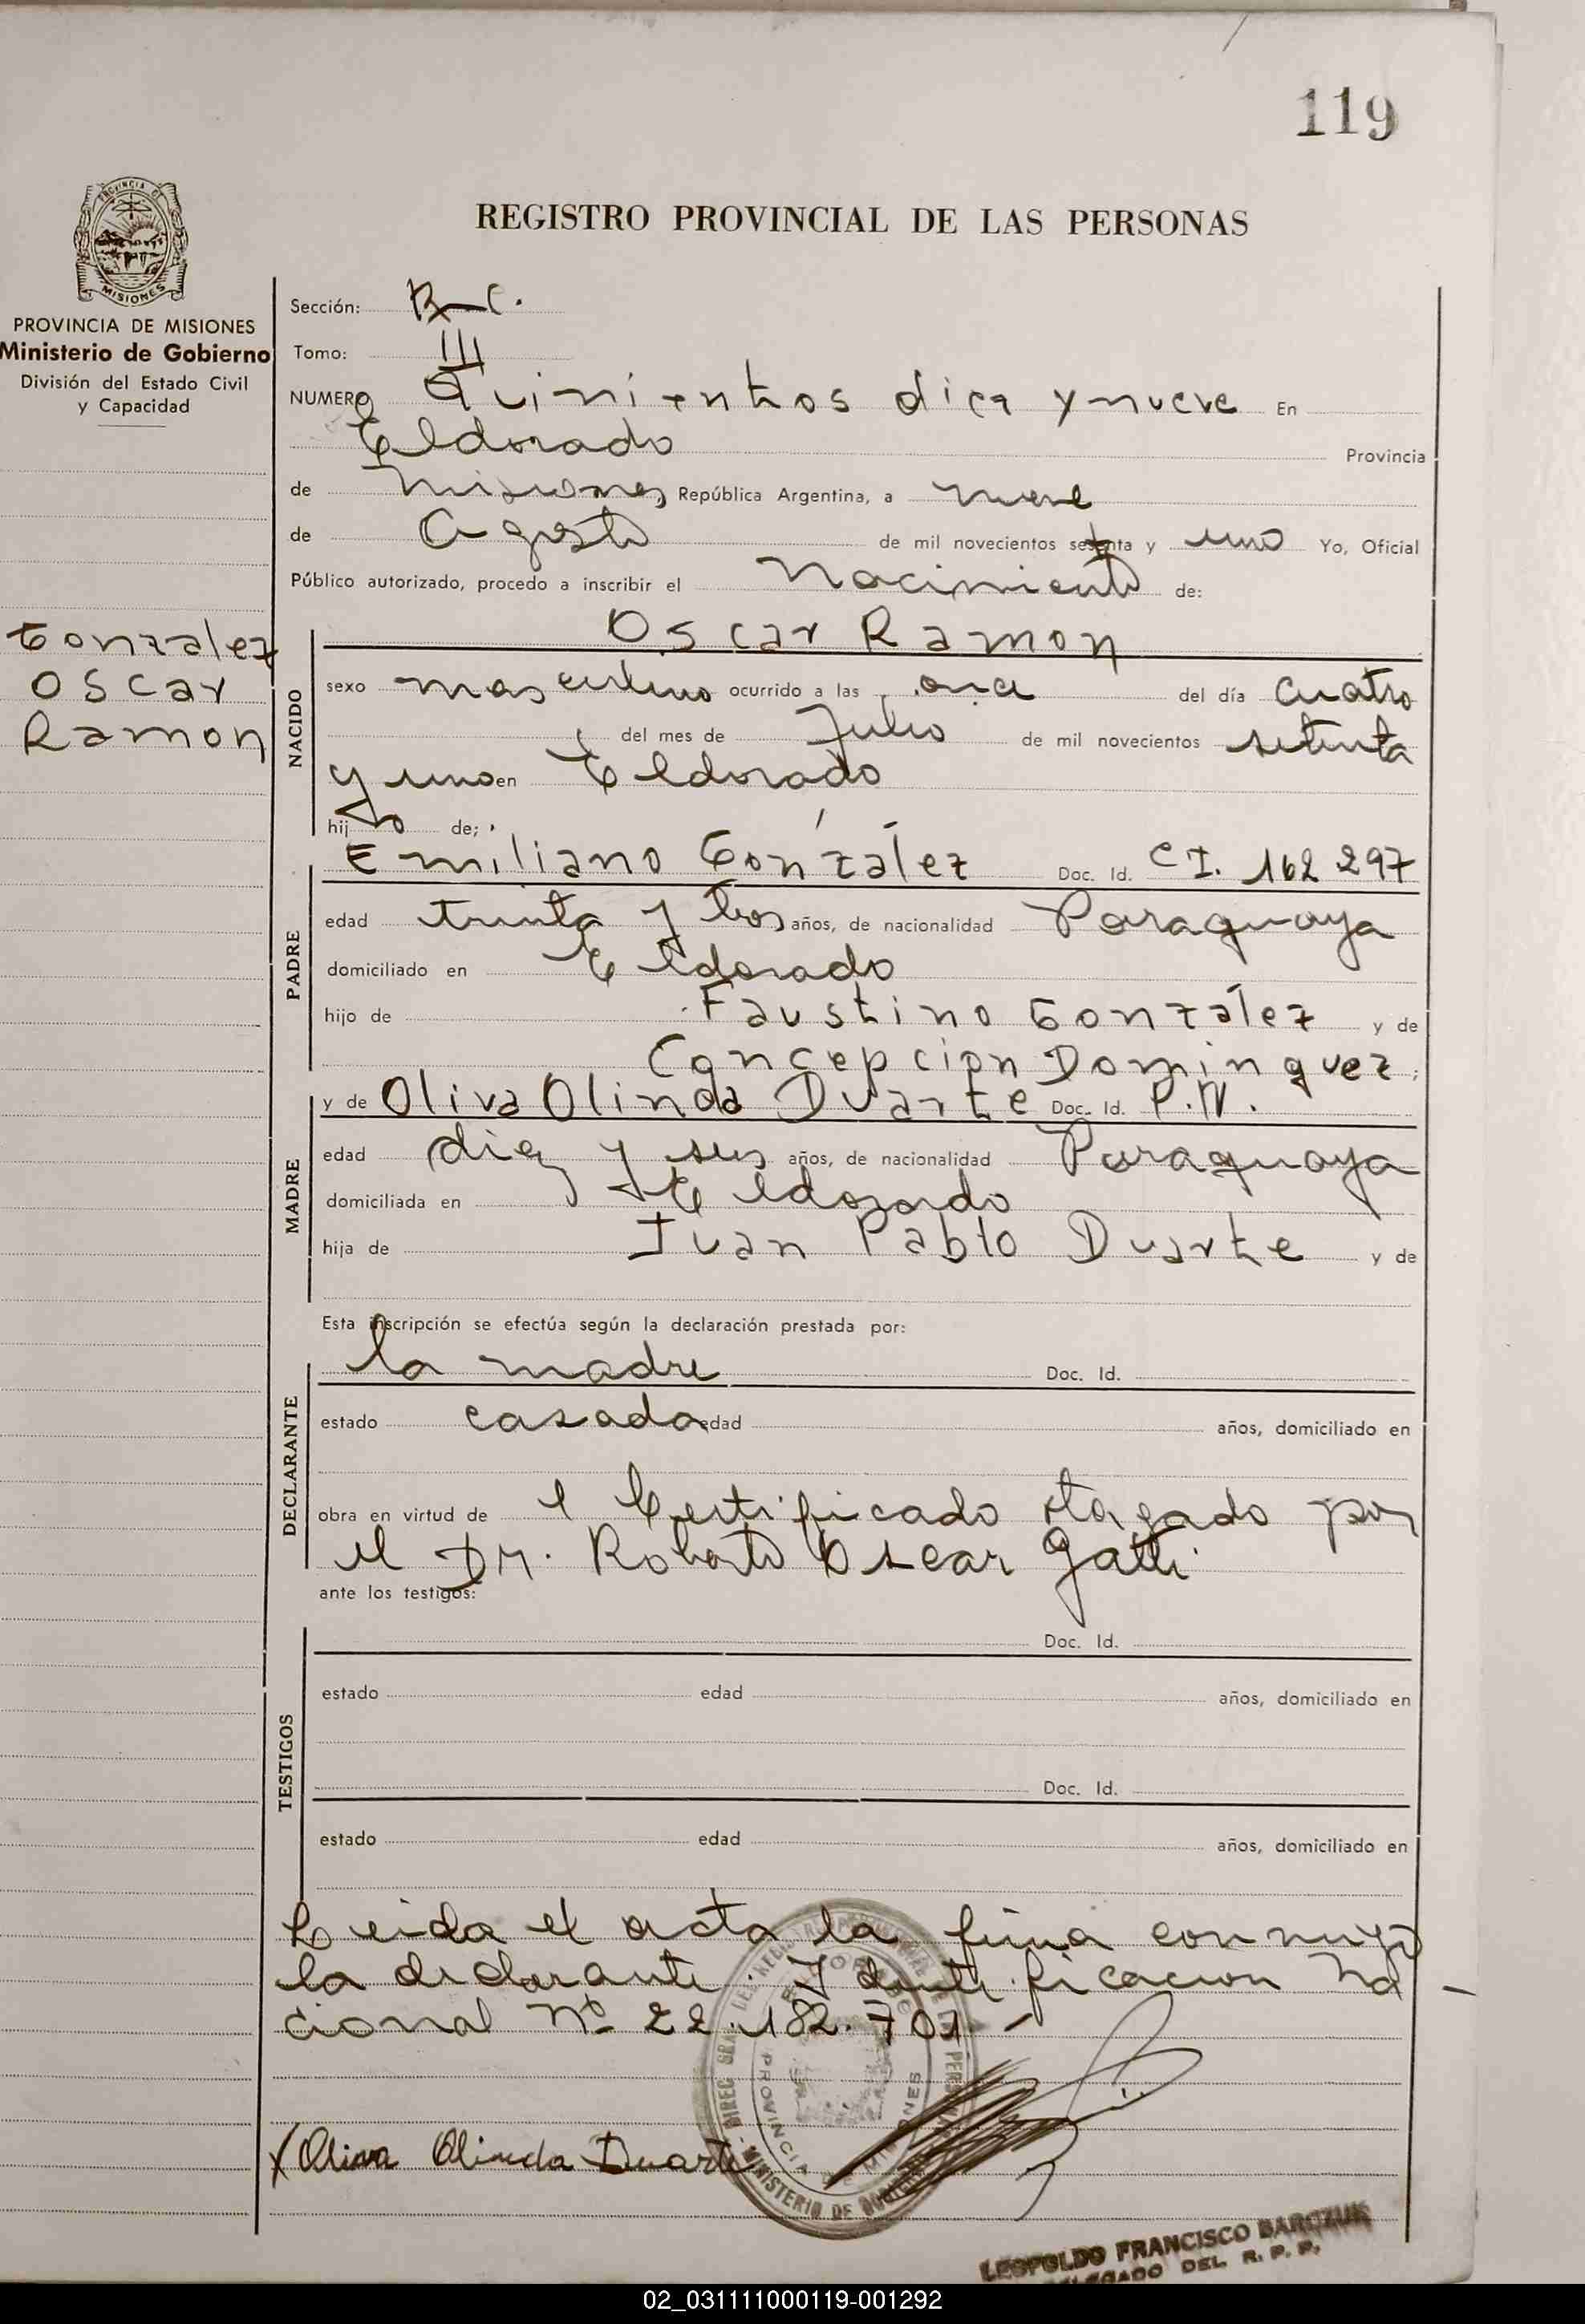 119
REGISTRO PROVINCIAL DE LAS PERSONAS
PROVINCIA DE MISIONES
PROVINCIA DE MISIONES
Ministerio de Gobierno
División del Estado Civil
y Capacidad
Gonzalez
Oscar
Ramon
Sección: R.C.
Tomo: III
NUMERO Quinientos diez y nueve En
Eldorado Provincia
de Misiones República Argentina, a nueve
de Agosto de mil novecientos setenta y uno Yo, Oficial
Público autorizado, procedo a inscribir el Nacimiento de:
NACIDO
Oscar Ramon
sexo masculino ocurrido a las once del día cuatro
del mes de Julio de mil novecientos setenta
y uno en Eldorado
hijo de;
PADRE
Emiliano González Doc. Id. C.I. 162 297
edad treinta y tres años, de nacionalidad Paraguaya
domiciliado en Eldorado
hijo de Faustino González y de
Concepcion Dominguez;
MADRE
y de Oliva Olinda Duarte Doc. Id. P.N.
edad diez y seis años, de nacionalidad Paraguaya
domiciliada en Eldorado
hija de Juan Pablo Duarte y de
Esta inscripción se efectúa según la declaración prestada por:
DECLARANTE
la madre Doc. Id.
estado casada edad años, domiciliado en
obra en virtud de l Certificado otorgado por
el Dr. Roberto Oscar Gatti
ante los testigos:
TESTIGOS
Doc. Id.
estado edad años, domiciliado en
Doc. Id.
estado edad años, domiciliado en
Leida el acta la firma conmigo
la declarante. Identificacion Na
cional Nº 22.182.701.-
Oliva Olinda Duarte
PROVINCIA DE MISIONES
MINISTERIO DE
LEOPOLDO FRANCISCO BARCZUK
DELEGADO DEL R. P. P.
02_031111000119-001292